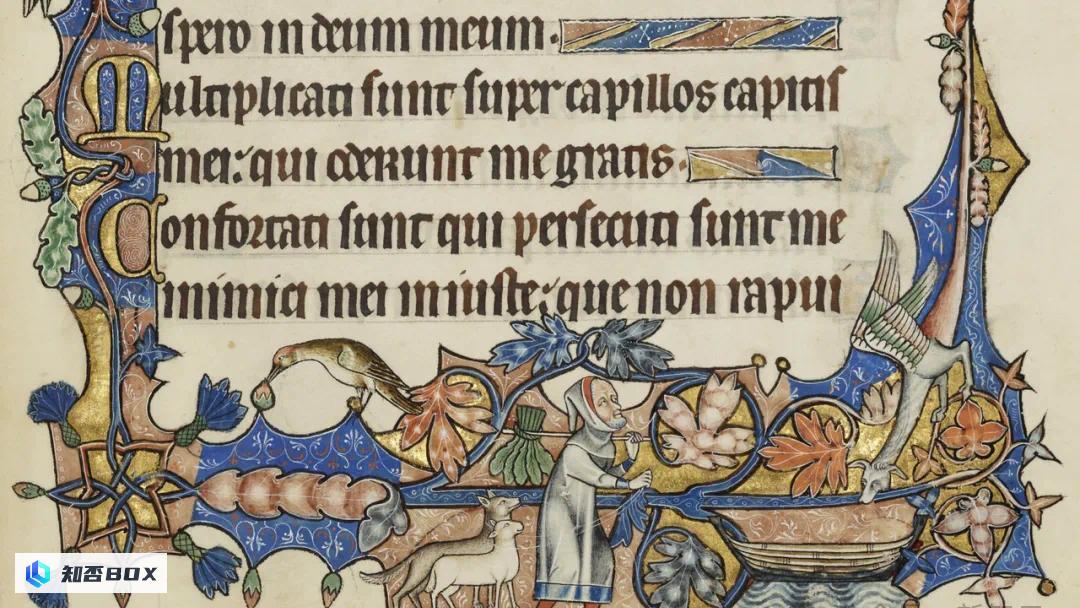 spero in deum meum.
Multiplicati sunt super capillos capitis
mei: qui oderunt me gratis.
Confortati sunt qui persecuti sunt me
inimici mei iniuste: que non rapui
知否BOX